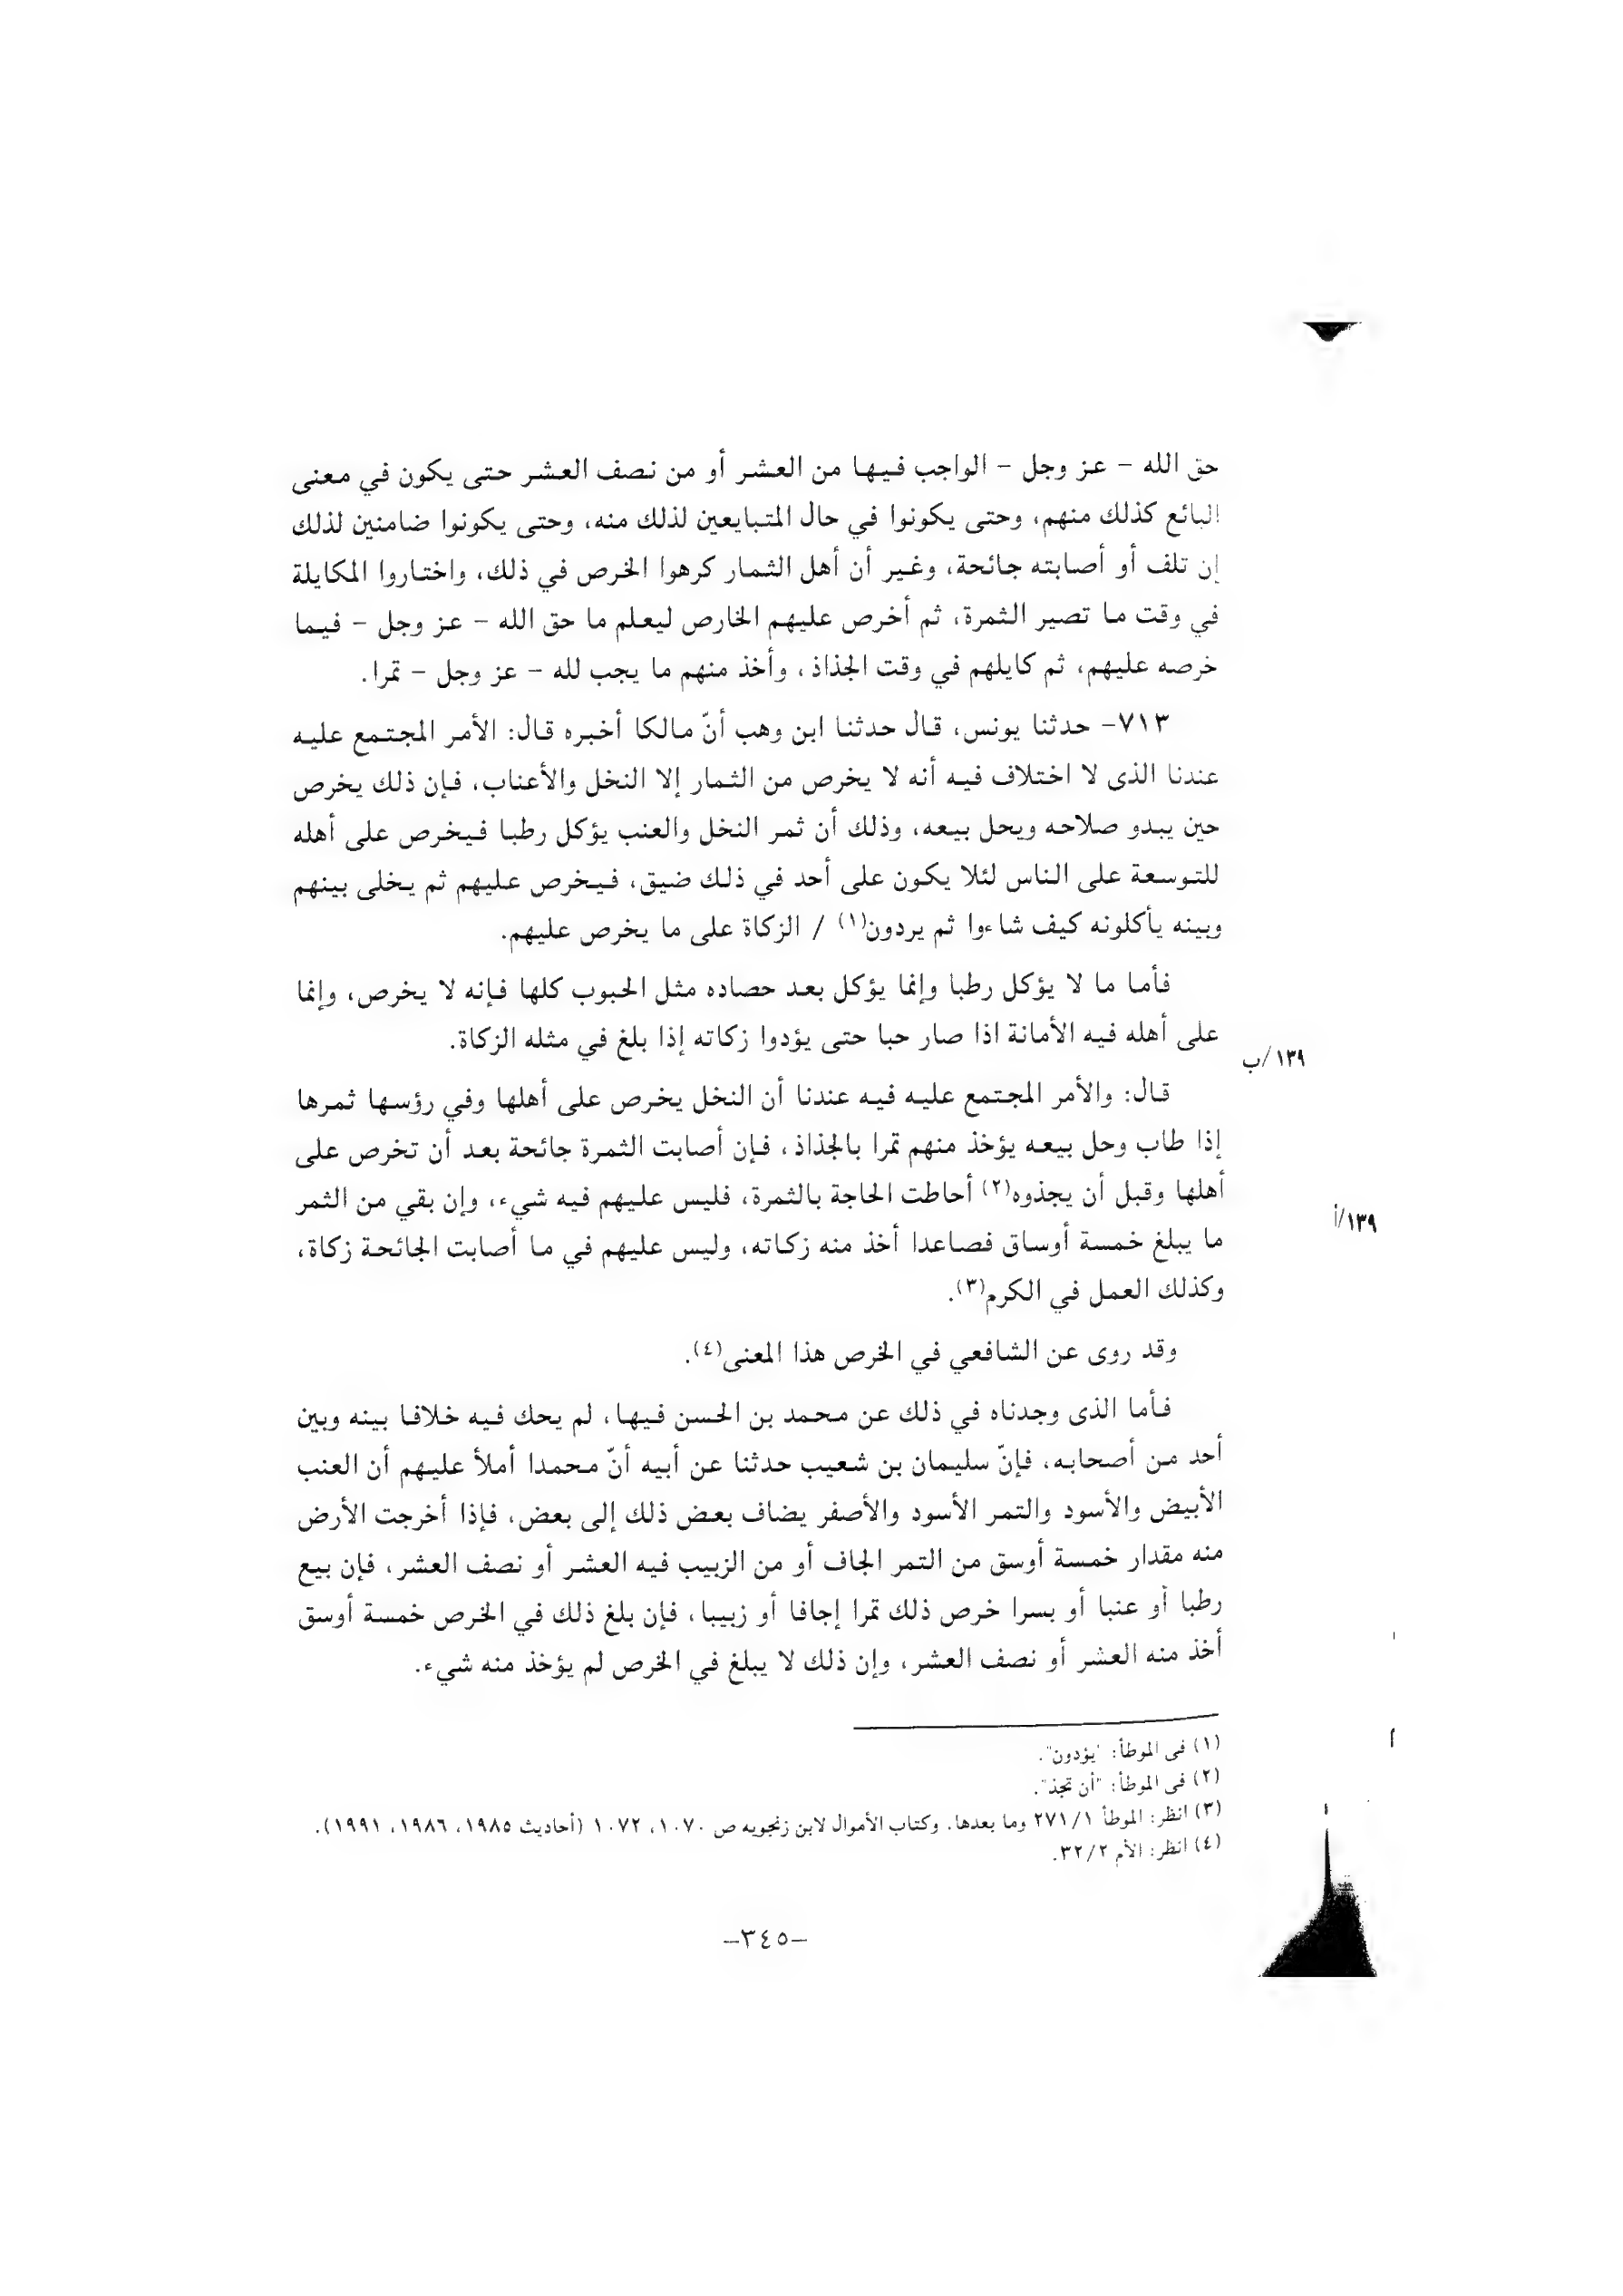 حق الله - عز وجل - الواجب فيها من العشر أو من نصف العشر حتى يكون في معنى
البائع كذلك منهم، وحتى يكونوا في حال المتبايعين لذلك منه، وحتى يكونوا ضامنين لذلك
إن تلف أو أصابته جائحة، وغير أن أهل الثمار كرهوا الخرص في ذلك، واختاروا المكايلة
في وقت ما تصير الثمرة، ثم أخرص عليهم الخارص ليعلم ما حق الله - عز وجل - فيما
خرصه عليهم، ثم كايلهم في وقت الجذاذ، وأخذ منهم ما يجب لله - عز وجل - تمرا.
٧١٣- حدثنا يونس، قال حدثنا ابن وهب أنّ مالكا أخبره قال: الأمر المجتمع عليه
عندنا الذى لا اختلاف فيه أنه لا يخرص من الثمار إلا النخل والأعناب، فإن ذلك يخرص
حين يبدو صلاحه ويحل بيعه، وذلك أن ثمر النخل والعنب يؤكل رطبا فيخرص على أهله
للتوسعة على الناس لئلا يكون على أحد في ذلك ضيق، فيخرص عليهم ثم يخلى بينهم
وبينه يأكلونه كيف شاءوا ثم يردون(١) / الزكاة على ما يخرص عليهم.
فأما ما لا يؤكل رطبا وإنما يؤكل بعد حصاده مثل الحبوب كلها فإنه لا يخرص، وإنما
على أهله فيه الأمانة اذا صار حبا حتى يؤدوا زكاته إذا بلغ في مثله الزكاة.
١٣٩/ب
قال: والأمر المجتمع عليه فيه عندنا أن النخل يخرص على أهلها وفي رؤسها ثمرها
إذا طاب وحل بيعه يؤخذ منهم تمرا بالجذاذ، فإن أصابت الثمرة جائحة بعد أن تخرص على
أهلها وقبل أن يجذوه(٢) أحاطت الحاجة بالثمرة، فليس عليهم فيه شيء، وإن بقي من الثمر
١٣٩/أ
ما يبلغ خمسة أوساق فصاعدا أخذ منه زكاته، وليس عليهم في ما أصابت الجائحة زكاة،
وكذلك العمل في الكرم(٣).
وقد روى عن الشافعي في الخرص هذا المعنى(٤).
فأما الذى وجدناه في ذلك عن محمد بن الحسن فيها، لم يحك فيه خلافا بينه وبين
أحد من أصحابه، فإنّ سليمان بن شعيب حدثنا عن أبيه أنّ محمدا أملأ عليهم أن العنب
الأبيض والأسود والتمر الأسود والأصفر يضاف بعض ذلك إلى بعض، فإذا أخرجت الأرض
منه مقدار خمسة أوسق من التمر الجاف أو من الزبيب فيه العشر أو نصف العشر، فإن بيع
رطبا أو عنبا أو بسرا خرص ذلك تمرا إجافا أو زبيبا، فإن بلغ ذلك في الخرص خمسة أوسق
أخذ منه العشر أو نصف العشر، وإن ذلك لا يبلغ في الخرص لم يؤخذ منه شيء.
(١) فى الموطأ: "يؤدون".
(٢) فى الموطأ: "أن تجذ".
(٣) انظر: الموطأ ٢٧١/١ وما بعدها. وكتاب الأموال لابن زنجويه ص ١٠٧٠، ١٠٧٢ (أحاديث ١٩٨٥، ١٩٨٦، ١٩٩١).
(٤) انظر: الأم ٣٢/٢.
-٣٤٥-